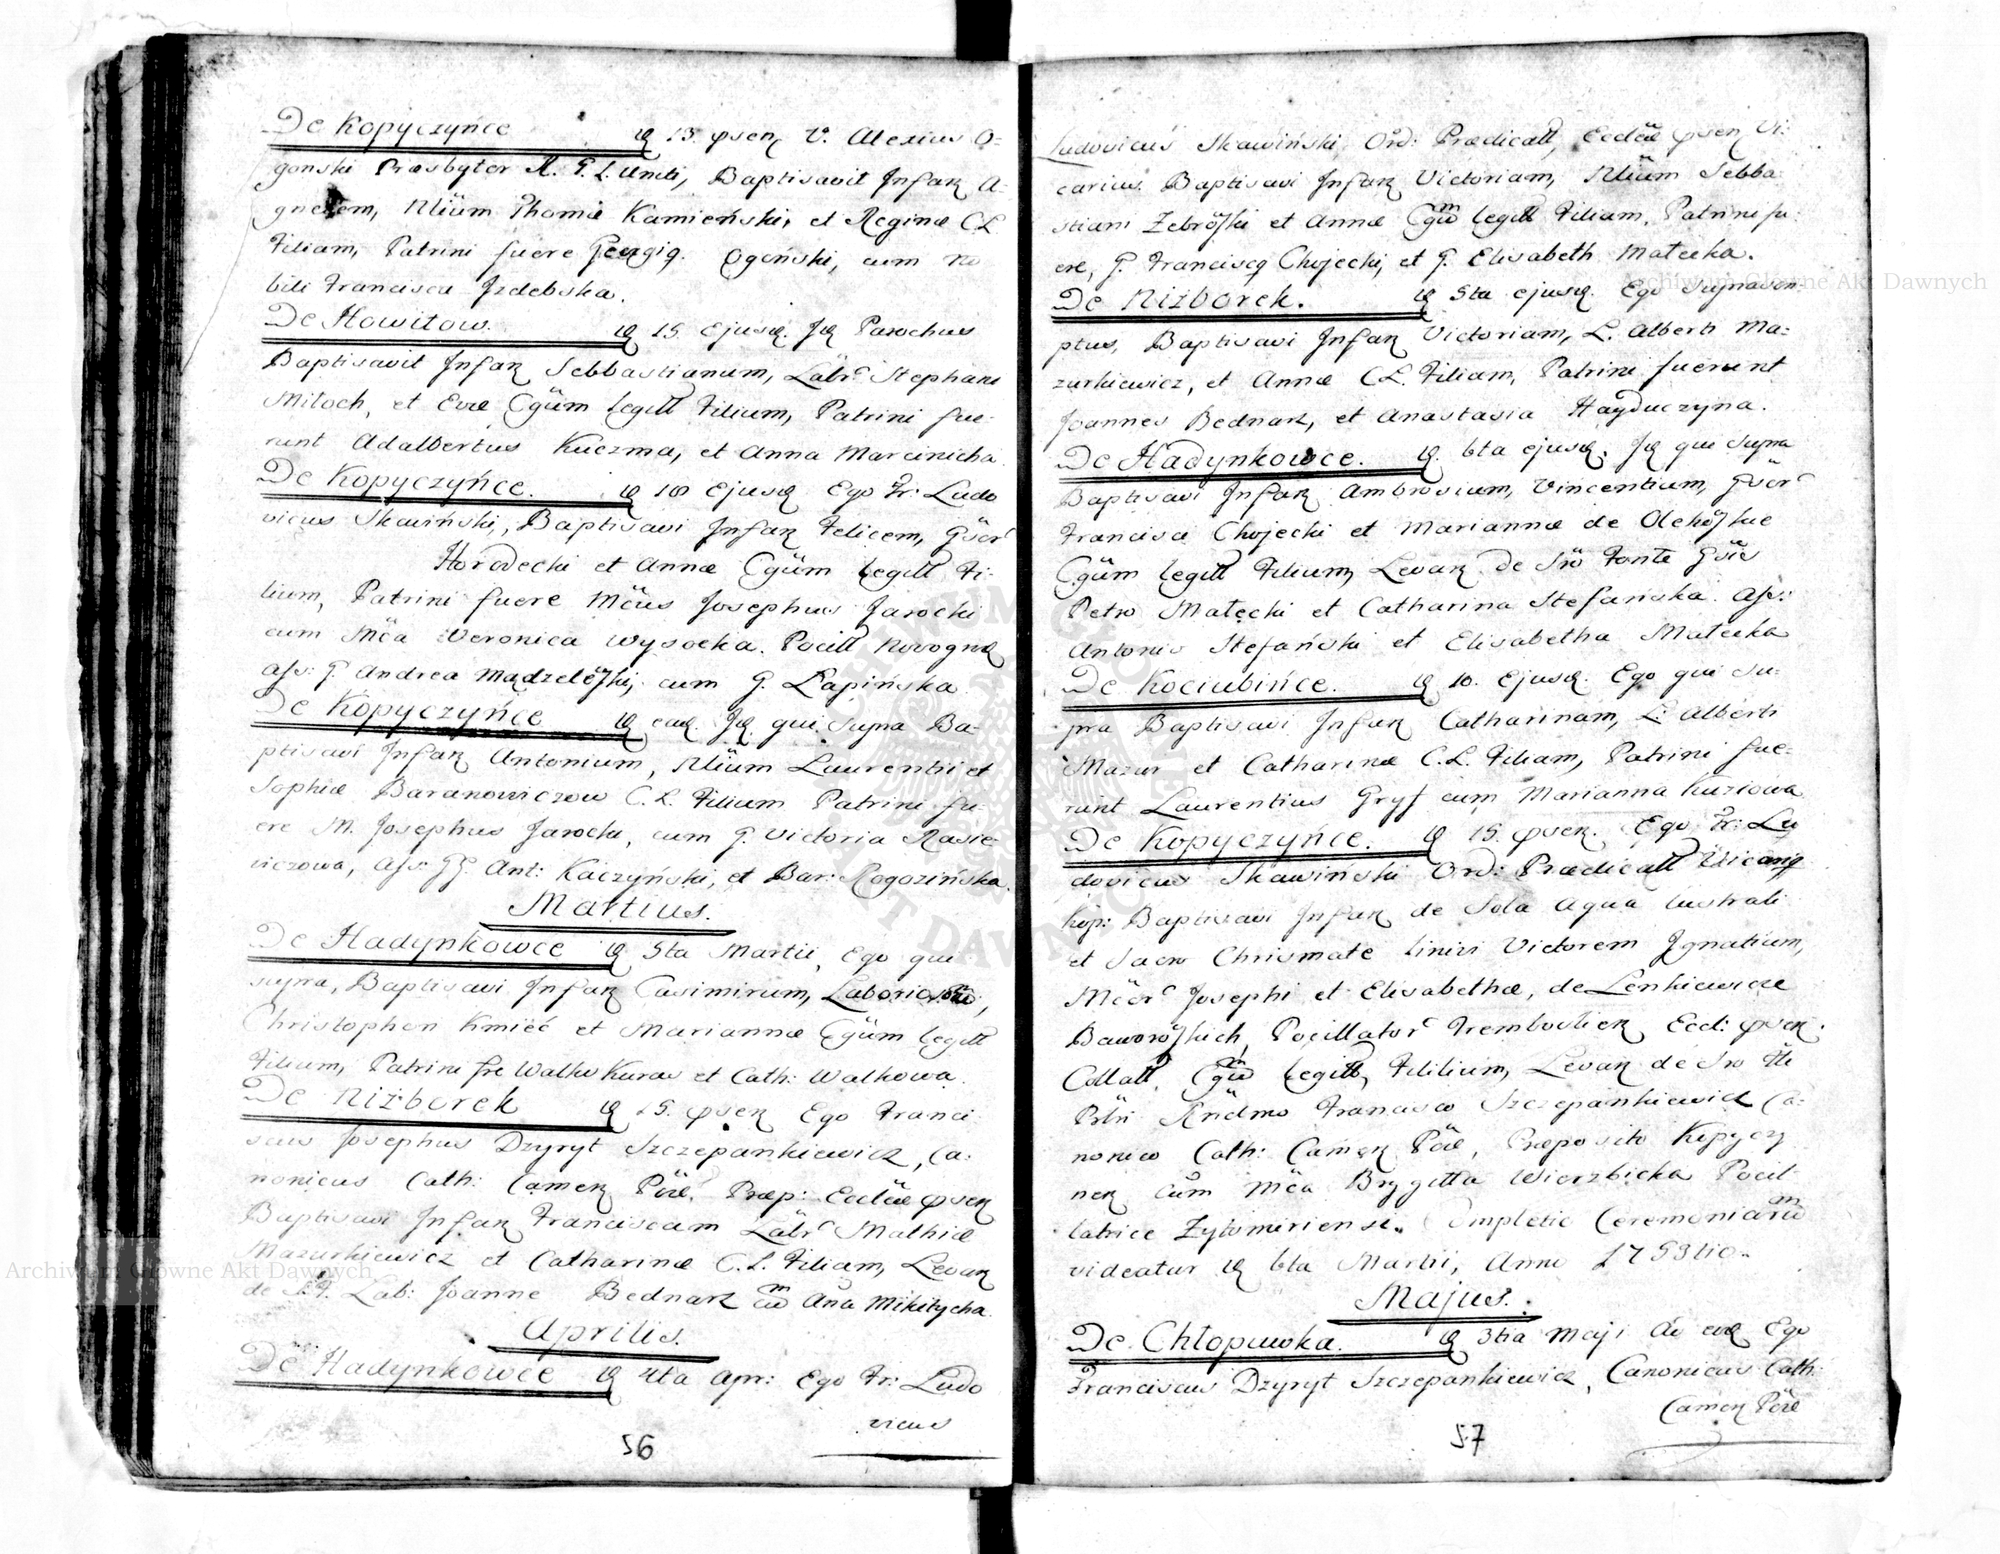 De Kopyczyńce D 13. psen V. Alexius O=
gonski Præsbyter R. G. L. Uniti, Baptisavit Infan A=
gnetem, Nlium Thomæ Kamieński, et Reginæ C L
Filiam, Patrini fuere Georgig. Ogonski, cum No
bili Francisca Jzdebska.
De Howitow. D 15 Ejusd. Jd Parochus
Baptisavit Infan Sebbastianum, Labr Stephani
Mitoch, et Evæ Cgum legitt Filium, Patrini fue=
runt Adalbertus Kuczma, et Anna Marcinicha
De Kopyczyńce. D 18 Ejusd Ego Fr: Ludo
vicus Skawiński, Baptisavi Infan Felicem, Gsor
Horodecki et Annæ Cgum legitt Fi=
lium, Patrini fuere Mcus Josephus Jarocki
cum Mca Weronica Wysocka. Pocill Novogrod
Ass: G Andrea Mądzelesski, cum G. Łapińska
De Kopyczyńce D ead. Jd. qui supra Ba=
ptisavi Infan Antonium, Nlium Laurentii et
Sophiæ Baranowiczow C. L. Filium Patrini fu=
ere M. Josephus Jarocki, cum G. Victoria Rasie=
wiczowa, Ass: GG. Ant: Kaczyński, et Bar: Rogozińska.
Martius.
De Hadynkowce D 5ta Martii, Ego qui
supra, Baptisavi Infan Casimirum,
Christophori Kmieć et Mariannæ Cgum legitt
Filium, Patrini fre Walko Kuras et Cath: Walkowa.
De Niżborek D 15. psen Ego Franci
scus Josephus Dzyryt Szczepankiewicz, Ca=
nonicus Cath: Camen Pôæ, Præp: Ecclæ psen
Baptisavi Infan Franciscam Labr Mathiæ
Mazurkiewicz et Catharinæ C. L. Filiam, Levan
de S. F. Lab: Joanne Bednarz cum Ana Mikitycha.
Aprilis.
De Hadynkowce D 4ta Apr: Ego Fr: Ludo
vicus
56
Ludovicus Skawiński Ord: Prædicatt, Ecclæ psen Vi=
carius. Baptisavi Infan Victoriam, Nlium Sebba
stiani Zebrosski et Annæ Cgum legitt Filiam, Patrini fu=
ere, G. Franciscg Chojecki, et G. Elisabeth Matecka.
De Niżborek. D 5ta ejusd. Ego suprascri
ptus, Baptisavi Infan Victoriam, L. Alberti Ma=
zurkiewicz, et Annæ C L. Filiam, Patrini fuerunt
Joannes Bednarz, et Anastasia Hayduczyna.
De Hadynkowce. D. 6ta ejusd. Jd qui supra
Baptisavi Infan Ambrosium, Vincentium, Gsor
Francisci Chojecki et Mariannæ de Olehosskie
Cgum legitt Filium, Levan de Sro Fonte Gsis
Petro Małęcki et Catharina Stefańska. Ass:
Antonio Stefański et Elisabetha Matecka
De Kociubińce. D 10. Ejusd. Ego qui su=
pra Baptisavi Infan Catharinam, L. Alberti
Mazur et Catharinæ C. L. Filiam, Patrini fue=
runt Laurentius Gryf cum Marianna Kuziowa
De Kopyczyńce. D 15. psen. Ego Fr: Lu
dovicus Skawiński Ord: Prædicatt Vicarig
Kop: Baptisavi Infan de Sola Aqua lustrali
et Sacro Chrismate liniri Victorem Jgnatium,
Mcor Josephi et Elisabethæ, de Lenkiewicze
Baworosskich, Pocillator Trembovlien Eccl: psen.
Collatt, Cgum legitt, Fililium, Levan de Sro Fte
Prtri Rndmo Francisco Szczepankiewicz Ca=
nonico Cath: Camen Pôæ, Præposito Kopyczy
nen cum Mca Brygitta Wierzbicka Pocil=
latrice Zytomiriense. Completio Ceremoniarum
videatur D 6ta Martii, Anno 1753tio.
Majus.
De Chłopuwka. D 3tia Maji Ao eod Ego
Franciscus Dzyryt Szczepankiewicz, Canonicus Cath:
Camen Pôæ
57
Archiwum Główne Akt Dawnych
Archiwum Główne Akt Dawnych